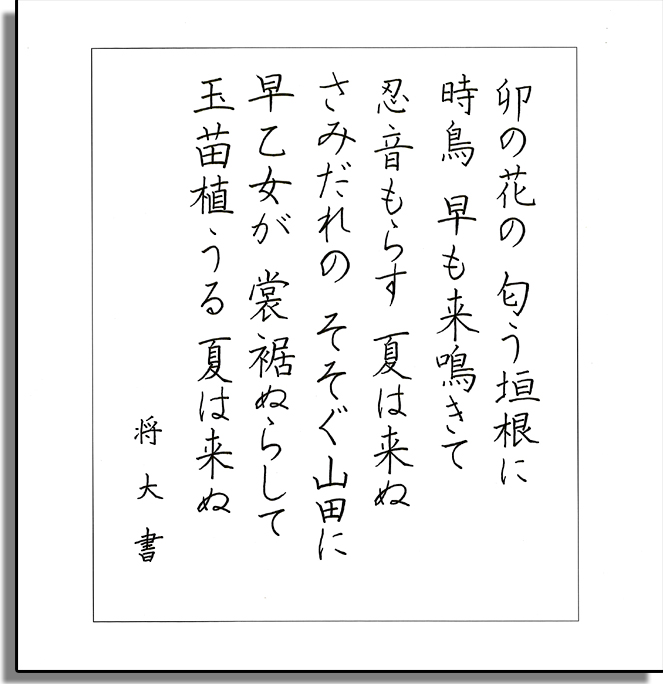 卯の花の 匂う垣根に
時鳥 早も来鳴きて
忍音もらす 夏は来ぬ
さみだれの そそぐ山田に
早乙女が 裳裾ぬらして
玉苗植うる 夏は来ぬ
将大書